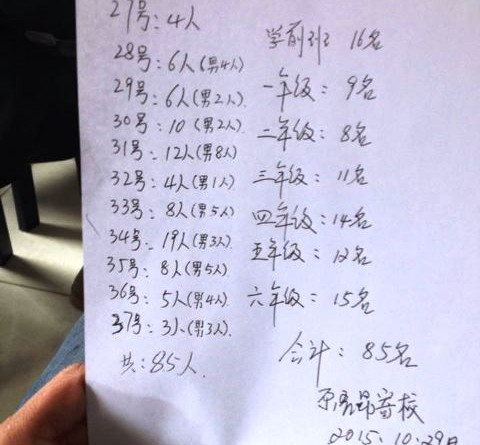 27号：4人
28号：6人(男4人)
29号：6人(男2人)
30号：10(男2人)
31号：12人(男8人)
32号：4人(男1人)
33号：8人(男5人)
34号：19人(男3人)
35号：8人(男5人)
36号：5人(男4人)
37号：3人(男3人)
共：85人
学前班 16名
一年级：9名
二年级：8名
三年级：11名
四年级：14名
五年级：12名
六年级：15名
合计：85名
寄校
2015.10.29日